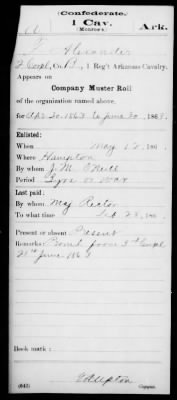 Confederate.
1 Cav.
(Monroe's)
Ark.
Alexander
2 Corpl, Co. B., 1 Reg't Arkansas Cavalry.
Appears on
Company Muster Roll
of the organization named above,
for Apr 30, 1863 to June 30, 1863.
Enlisted:
When May 12, 186 .
Where Hampton
By whom J. M. O'Neill
Period 3 yrs or War
Last paid:
By whom Maj Rector
To what time Feb 28, 186 .
Present or absent Present
Remarks: from 3rd Corpl
21st June 1863
Book mark:
(642)
Copyist.